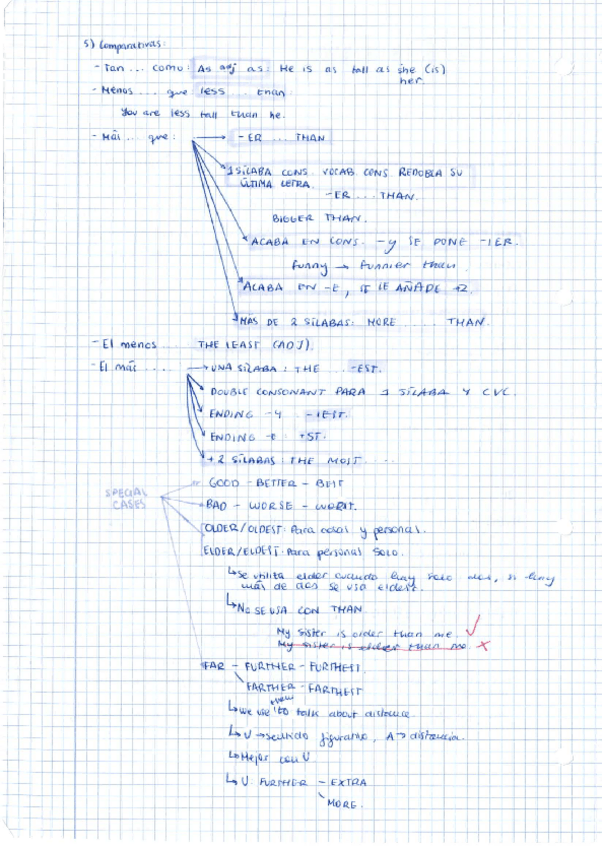 5) Comparativas:
- Tan ... como: As adj as: He is as tall as she (is)
her.
- Menos ... que less ... than
You are less tall than he.
- Más ... que: → -ER ... THAN
1 SÍLABA CONS. VOCAB. CONS. REDOBLA SU
ÚLTIMA LETRA.
-ER ... THAN.
BIGGER THAN.
ACABA EN CONS. -y SE PONE -IER.
funny → funnier than
ACABA EN -E, SE LE AÑADE +R.
MAS DE 2 SÍLABAS: MORE ..... THAN.
- El menos .... THE LEAST (ADJ).
- El más .... → UNA SÍLABA: THE ... -EST.
DOUBLE CONSONANT PARA 1 SÍLABA Y CVC.
ENDING -Y -IEST.
ENDING -e +ST.
+2 SÍLABAS: THE MOST .....
SPECIAL
CASES
GOOD - BETTER - BEST
BAD - WORSE - WORST.
OLDER/OLDEST: Para cosas y personas.
ELDER/ELDEST: Para personas SOLO.
↳ Se utiliza elder cuando hay solo dos, si hay
más de dos se usa eldest.
↳ NO SE USA CON THAN.
My sister is older than me. ✓
My sister is elder than me. ✗
FAR - FURTHER - FURTHEST
FARTHER - FARTHEST
↳ we use to talk about distance
↳ U → sentido figurativo, A → distancia.
↳ Mejor con U
↳ U: FURTHER - EXTRA
MORE.